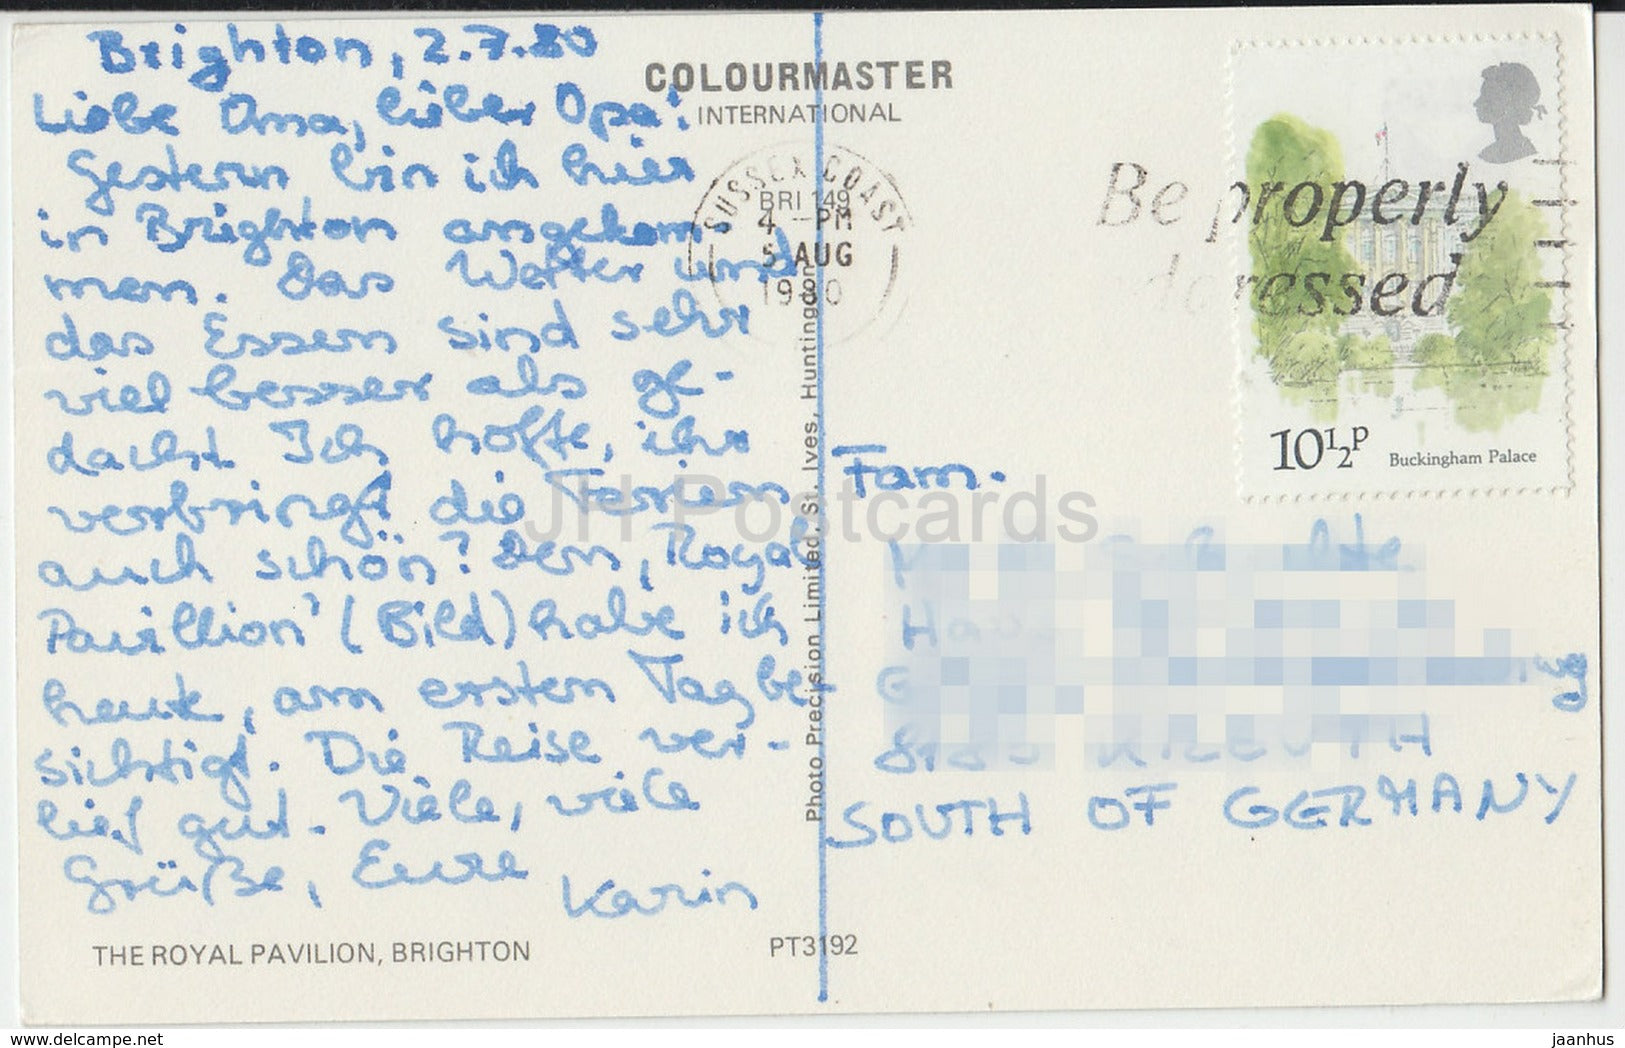 Brighton, 2.7.80
Liebe Oma, lieber Opa!
Gestern bin ich hier
in Brighton angekom-
men. Das Wetter und
das Essen sind sehr
viel besser als ge-
dacht. Ich hoffe, ihr
verbringt die Ferien
auch schön? Den, Royal
Pavillion' (Bild) habe ich
heute, am ersten Tag be-
sichtigt. Die Reise ver-
lief gut. Viele, viele
Grüße, Eure
Karin
THE ROYAL PAVILION, BRIGHTON
PT3192
COLOURMASTER
INTERNATIONAL
Photo Precision Limited, St. Ives, Huntingdon
SUSSEX COAST
BRI 149
4 - PM
5 AUG
1980
Be properly
addressed
10½p
Buckingham Palace
Fam.
SOUTH OF GERMANY
JH Postcards
www.delcampe.net
jaanhus